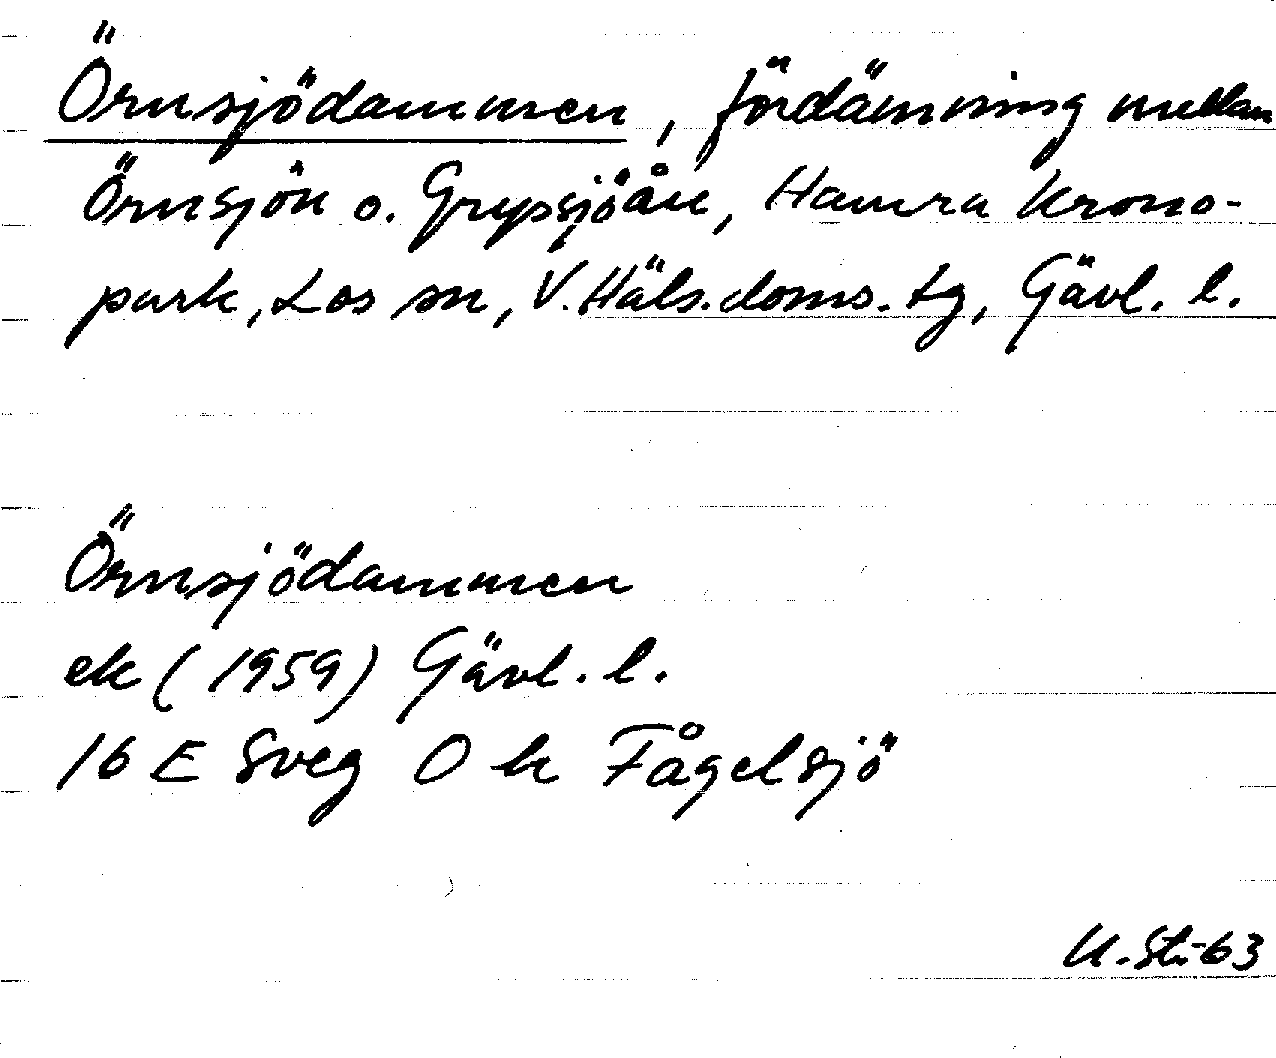 Örnsjödammen, fördämning mellan
Örnsjön o. Grypsjöån, Hamra krono-
park, Los sn, V. Häls. doms. tg, Gävl. l.
Örnsjödammen
ek (1959) Gävl. l.
16 E Sveg O h Fågelsjö
U. St.-63